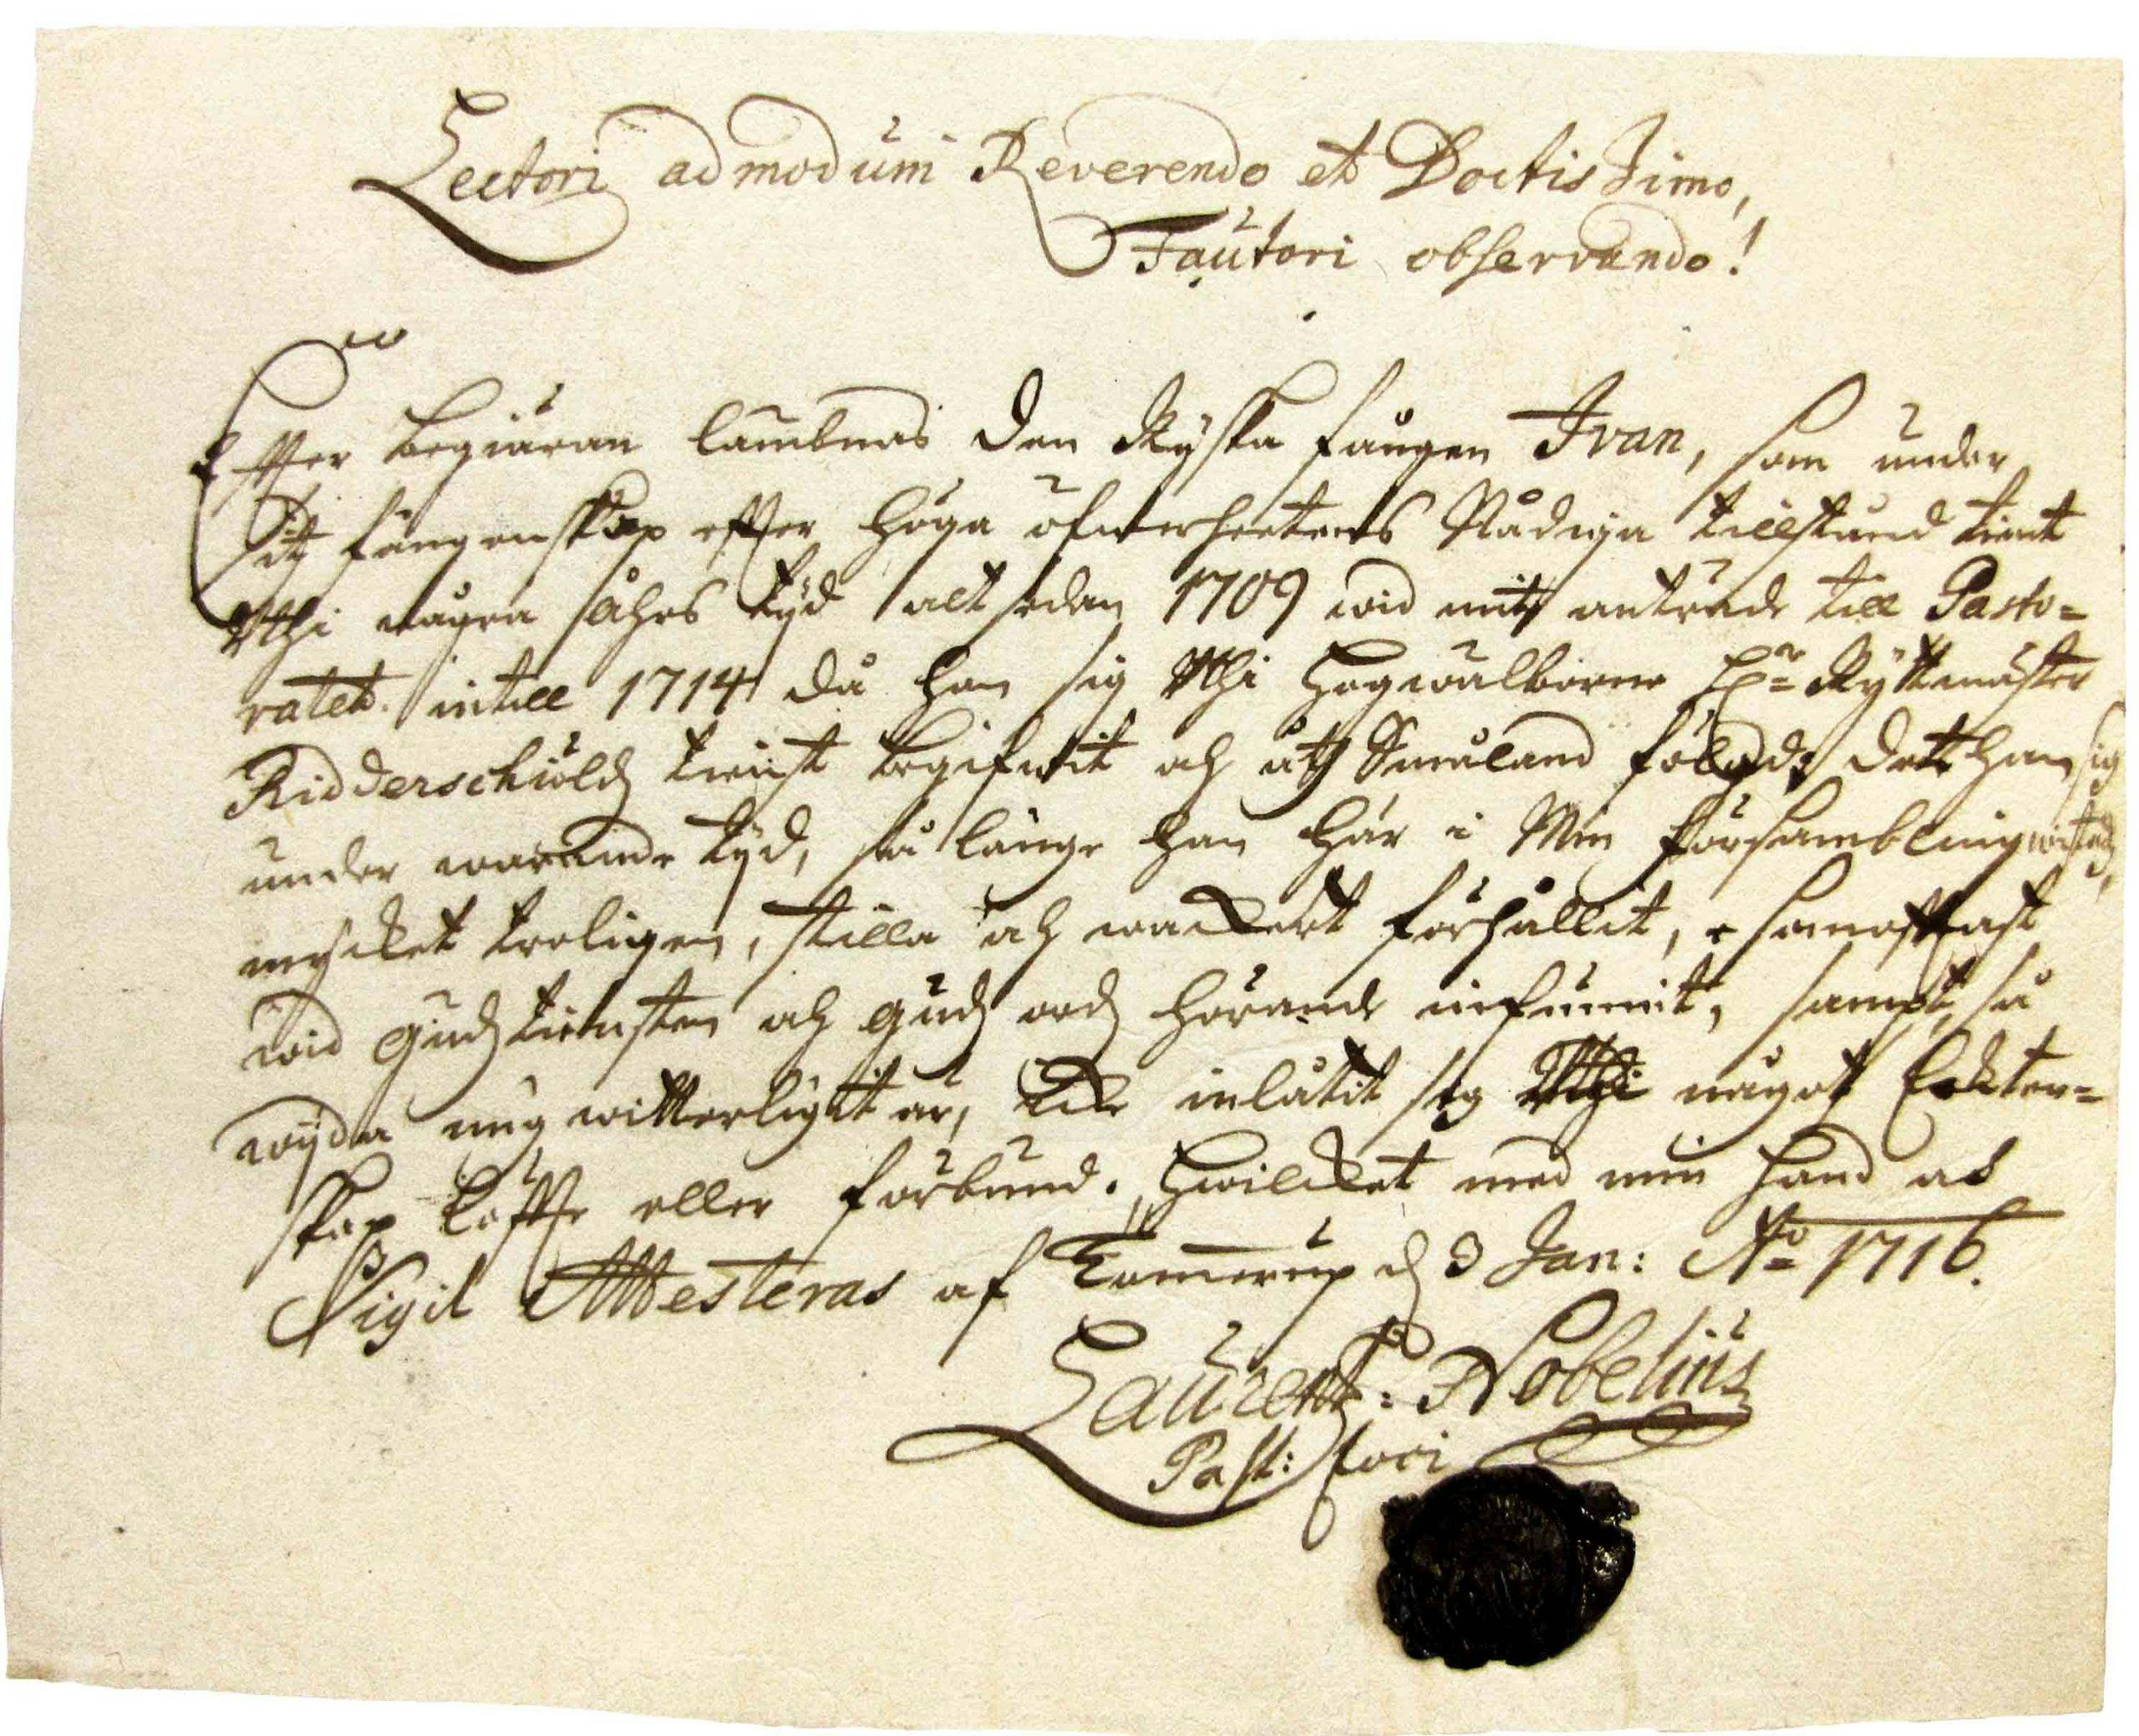 Lectori admodum Reverendo et Doctissimo,
Fautori observando!
Effter begiäran lämbnas den Ryska fången Ivan, som under
sitt fångenskap effter höga öfwerhetens Nådiga tillstånd tient
Uthi några åhrs tijd alt sedan 1709 wid mitt anträde till Pasto=
ratet intill 1714 då han sig Uthi Högwälborne Hr= Ryttmäster
Ridderschiölds tienst begifwit och åth Småland fölgde dett han sig
under warande tijd, så länge han här i Min försambling wistads,
mycket troligen, stilla och wackert förhållit, samoftast
wid gudztiensten och gudz ordz hörande infunnit, sampt, så
wijda mig witterligit är, icke inlåtit sig Uthi något Echten=
skap löffte eller förbund. Hwilcket med min hand och
Sigil Attesteras af Tomerup d 3 Jan: Ao 1716.
Laurent: Nobelius
Past: loci